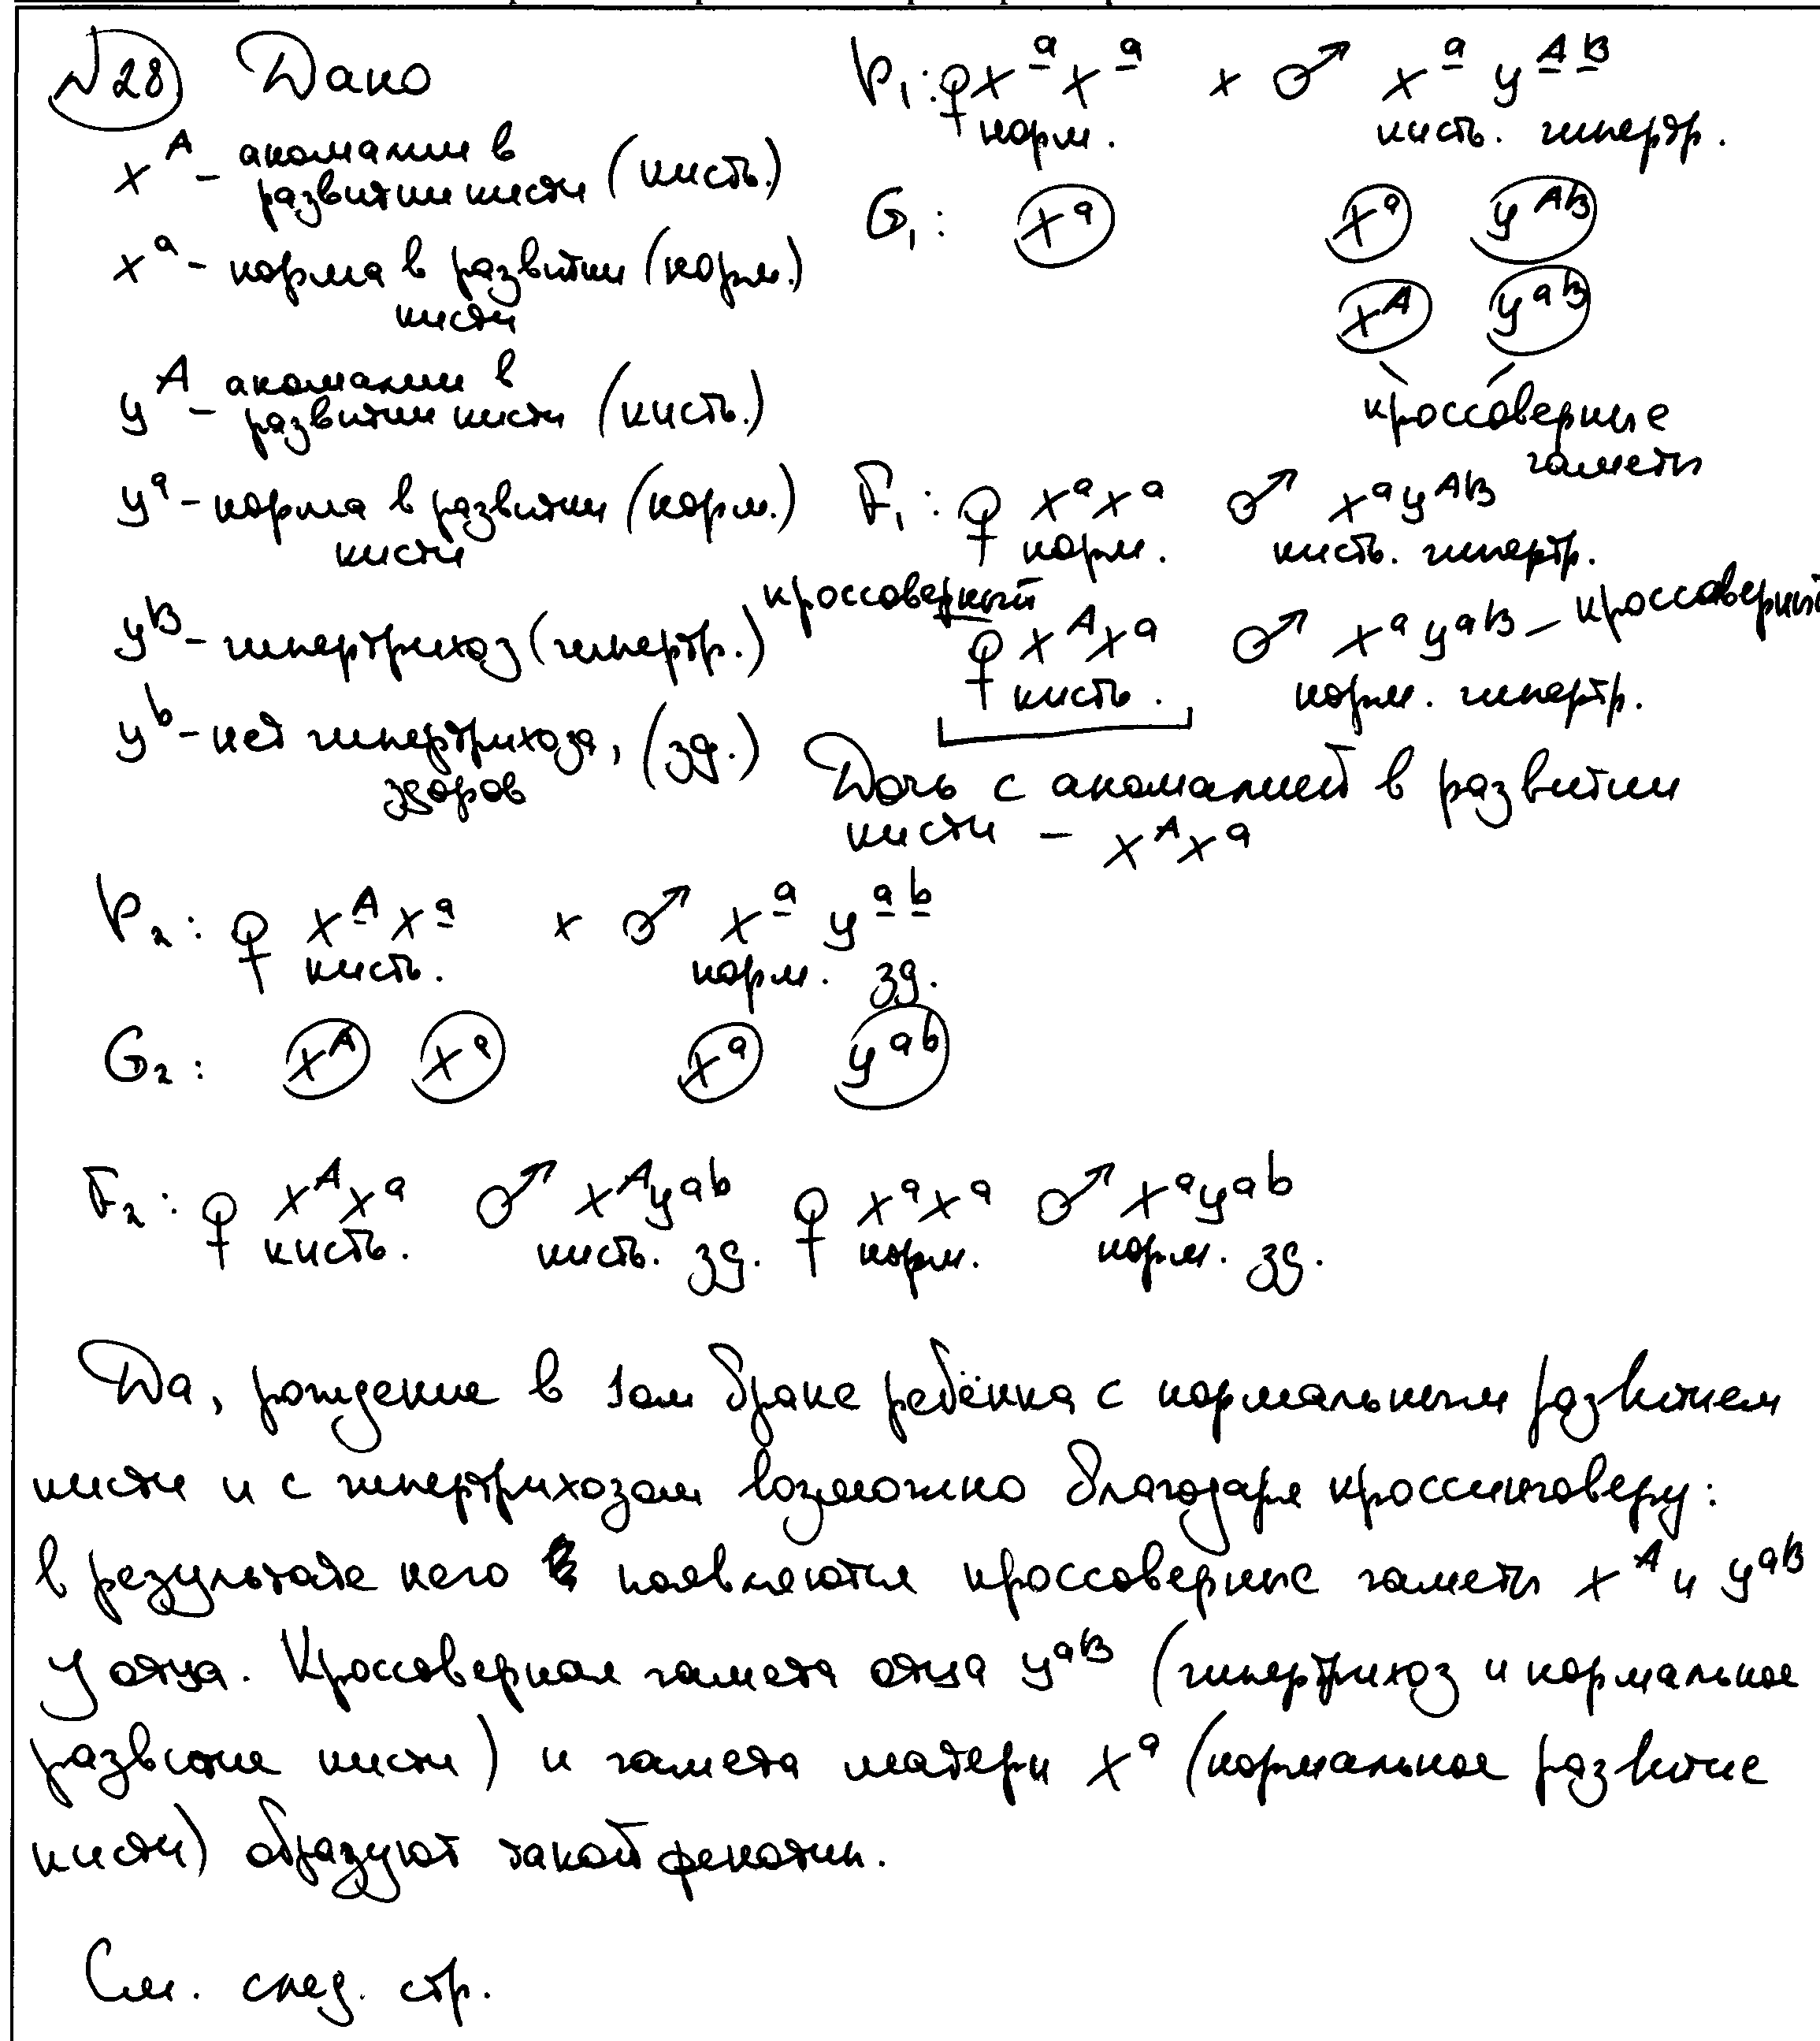 №28 Дано
X^A – аномалии в
развитии кисти (кисть.)
X^a – норма в развитии (норм.)
кисти
У^A – аномалии в
развитии кисти (кисть.)
У^a – норма в развитии (норм.)
кисти
У^B – гипертрихоз (гипертр.)
У^b – нет гипертрихоза, (зд.)
здоров
P₁: ♀ X^a X^a × ♂ X^a У^AB
норм. кисть. гипертр.
G₁: X^a X^a У^AB
X^A У^aB
кроссоверные
гаметы
F₁: ♀ X^a X^a ♂ X^a У^AB
норм. кисть. гипертр.
кроссоверный ♀ X^A X^a ♂ X^a У^aB – кроссоверный
кисть. норм. гипертр.
Дочь с аномалией в развитии
кисти – X^A X^a
P₂: ♀ X^A X^a × ♂ X^a У^ab
кисть. норм. зд.
G₂: X^A X^a X^a У^ab
F₂: ♀ X^A X^a ♂ X^A У^ab ♀ X^a X^a ♂ X^a У^ab
кисть. кисть. зд. норм. норм. зд.
Да, рождение в 1ом браке ребёнка с нормальным развитием
кисти и с гипертрихозом возможно благодаря кроссинговеру:
в результате него появляются кроссоверные гаметы X^A и У^aB
у отца. Кроссоверная гамета отца У^aB (гипертрихоз и нормальное
развитие кисти) и гамета матери X^a (нормальное развитие
кисти) образуют такой фенотип.
См. след. стр.